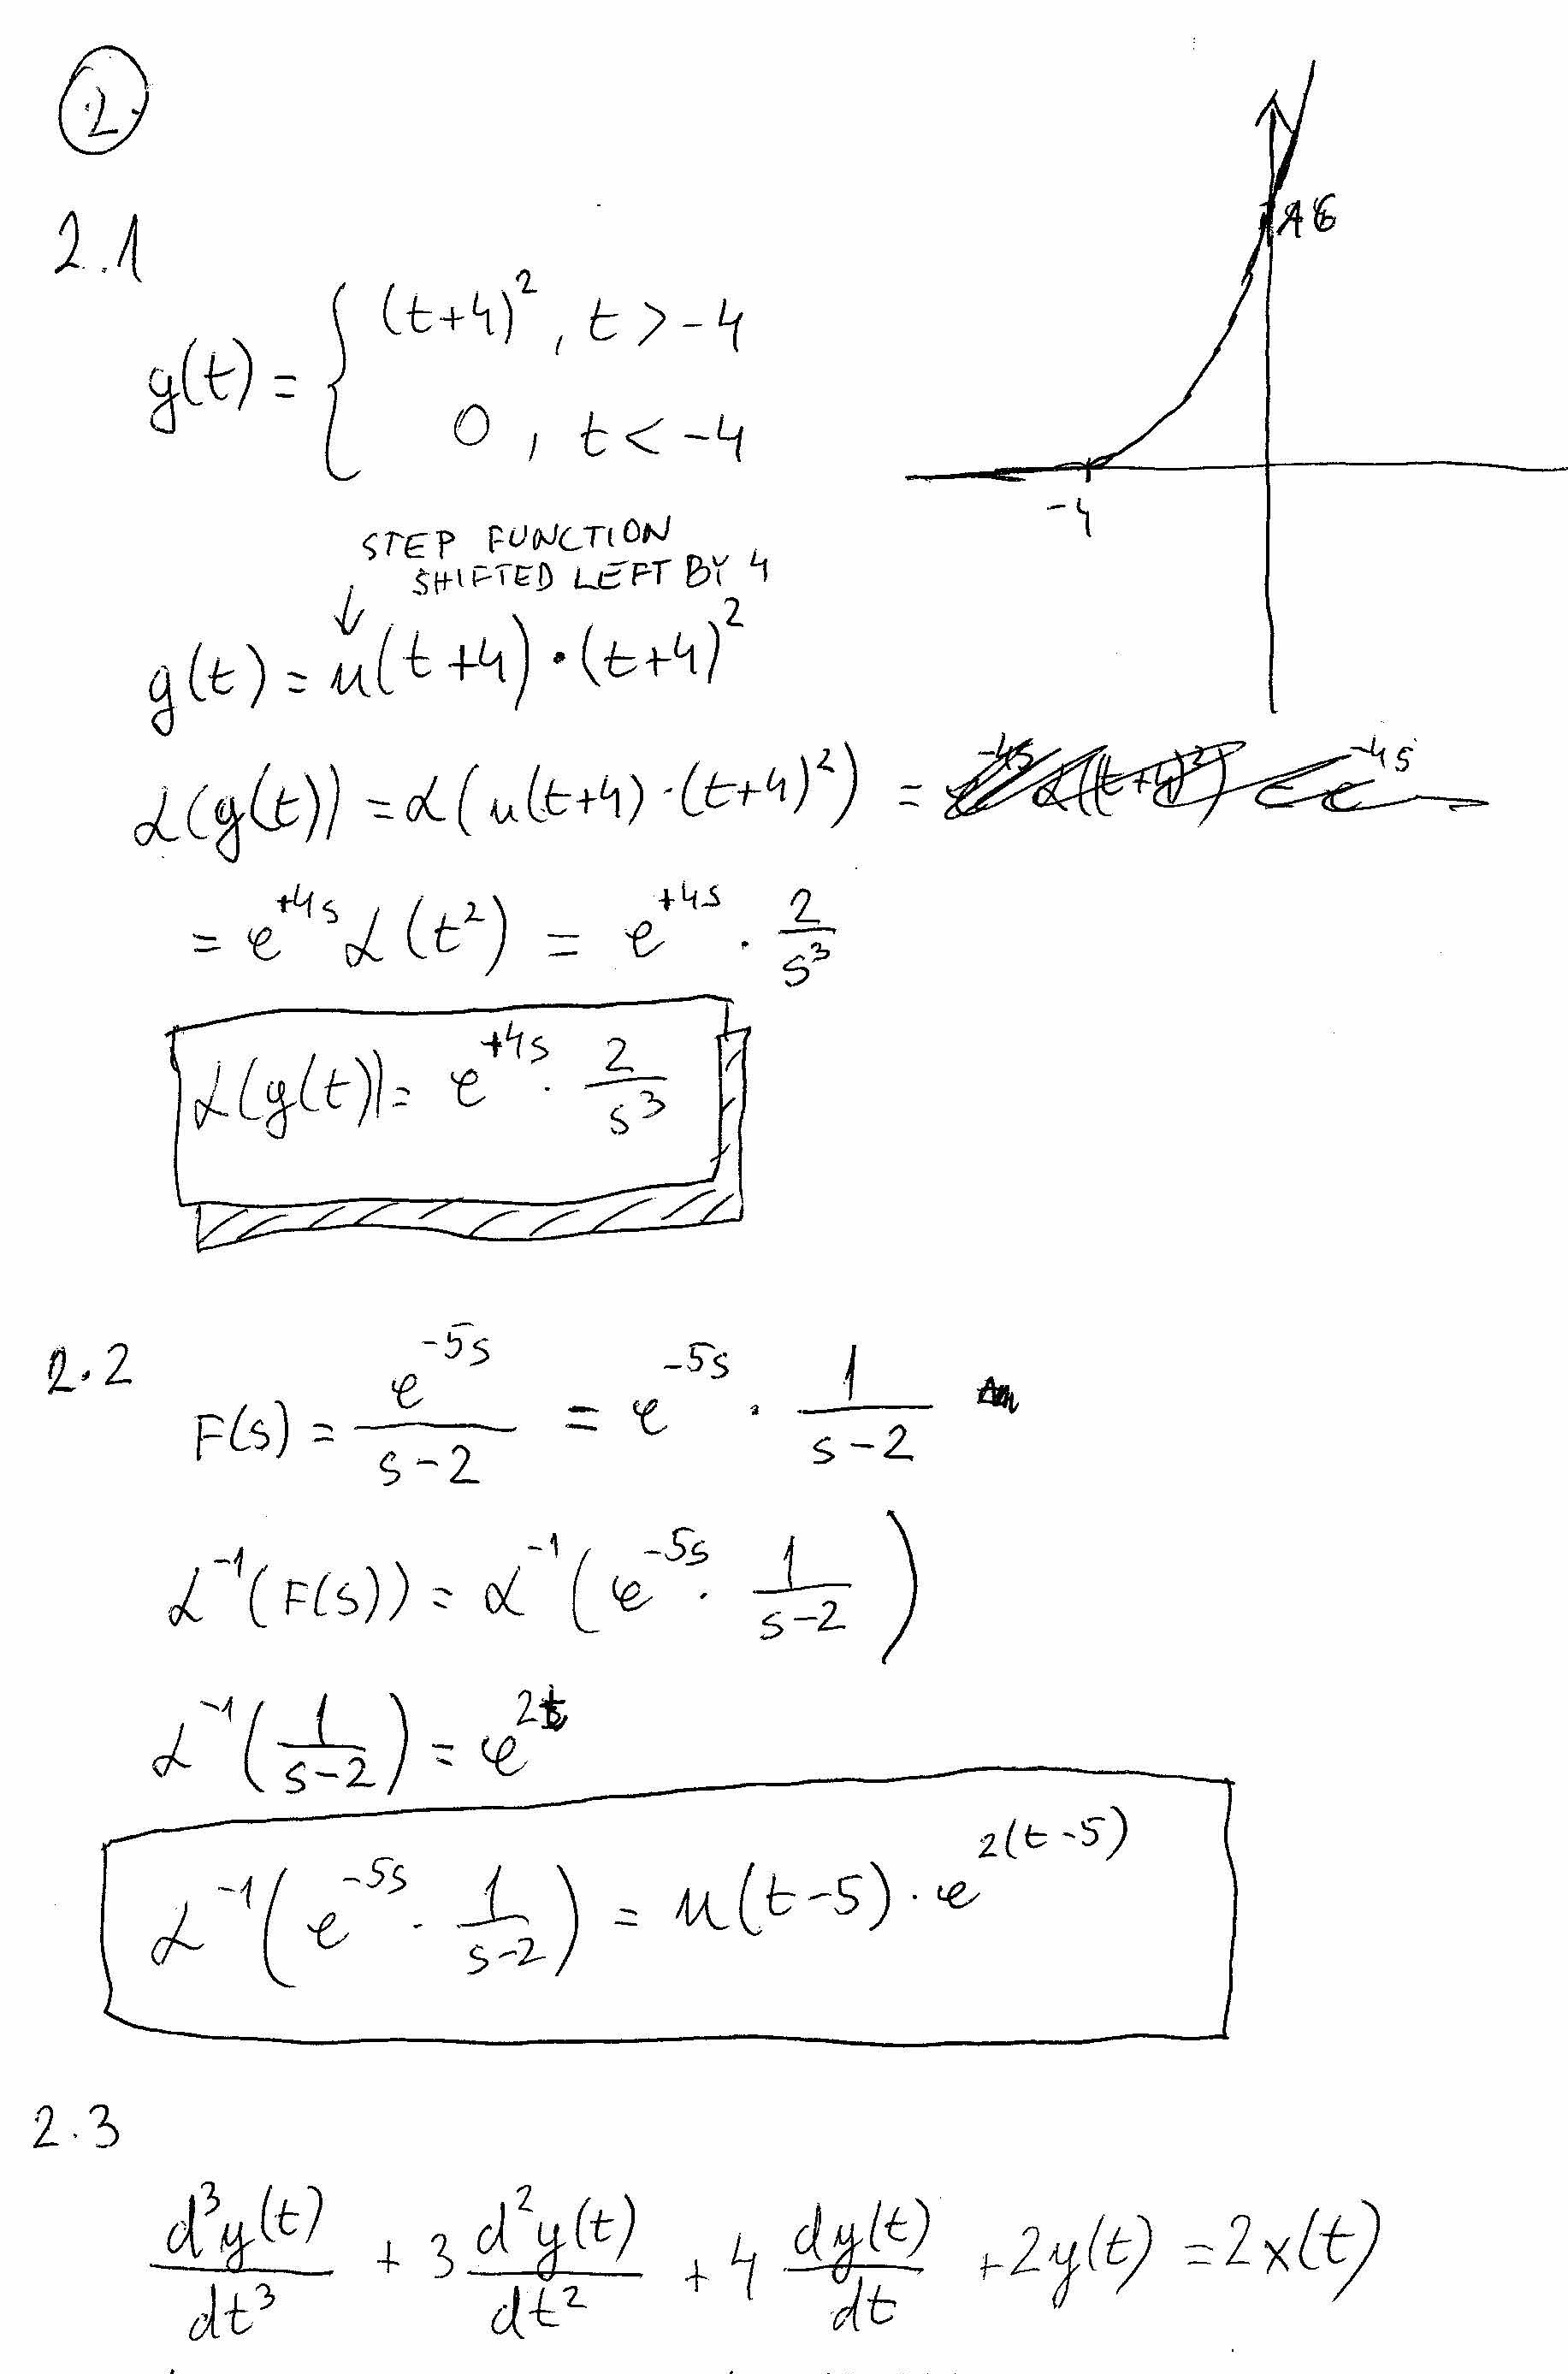 2
2.1
g(t) = { (t+4)², t > -4
0, t < -4
16
-4
STEP FUNCTION
SHIFTED LEFT BY 4
↓
g(t) = u(t+4)·(t+4)²
ℒ(g(t)) = ℒ(u(t+4)·(t+4)²) =
= e^{+4s} ℒ(t²) = e^{+4s} · 2/s³
ℒ(g(t)) = e^{+4s} · 2/s³
2.2
F(s) = e^{-5s}/(s-2) = e^{-5s} · 1/(s-2)
ℒ⁻¹(F(s)) = ℒ⁻¹(e^{-5s} · 1/(s-2))
ℒ⁻¹(1/(s-2)) = e^{2t}
ℒ⁻¹(e^{-5s} · 1/(s-2)) = u(t-5) · e^{2(t-5)}
2.3
d³y(t)/dt³ + 3 d²y(t)/dt² + 4 dy(t)/dt + 2y(t) = 2x(t)